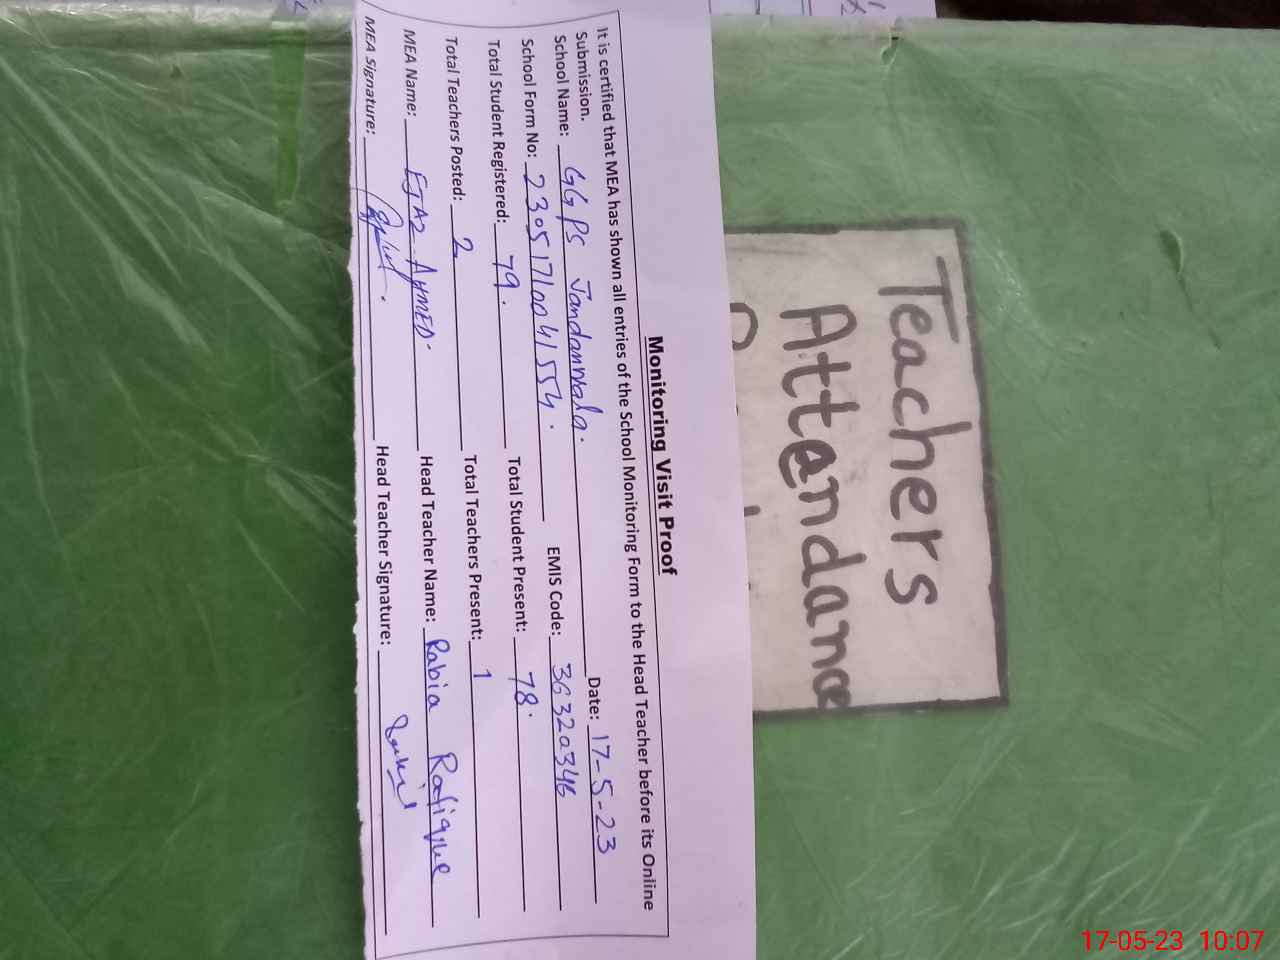 Monitoring Visit Proof
It is certified that MEA has shown all entries of the School Monitoring Form to the Head Teacher before its Online
Submission.
School Name: GGPS Jandanwala. Date: 17-5-23
School Form No: 23051710041554. EMIS Code: 36320346
Total Student Registered: 79. Total Student Present: 78.
Total Teachers Posted: 2 Total Teachers Present: 1
MEA Name: EJAZ AHMED. Head Teacher Name: Rabia Rafique
MEA Signature: Head Teacher Signature:
Teachers
Attendance
17-05-23 10:07